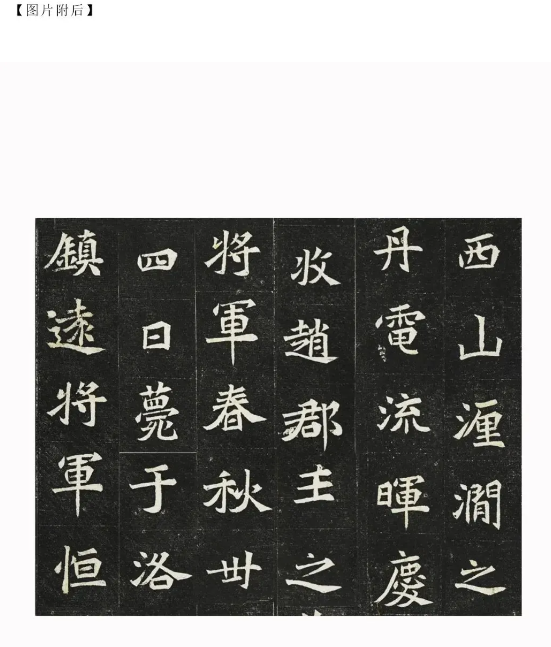 【图片附后】
西山湮澗之
丹電流暉慶
收趙郡主之
將軍春秋卌
四日薨于洛
鎮遠將軍恒